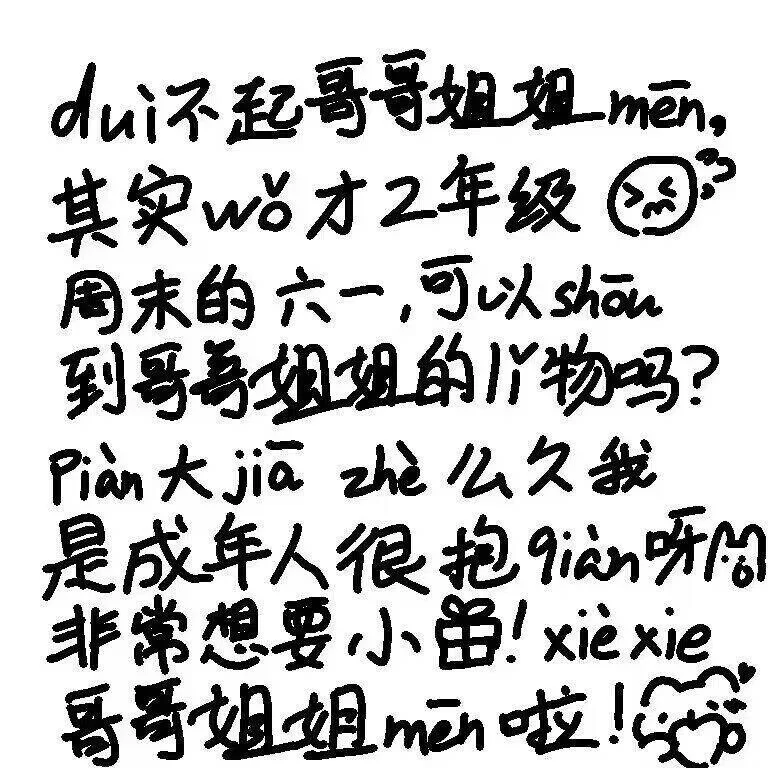 dui不起哥哥姐姐mēn,
其实wǒ才2年级
周末的六一,可以shōu
到哥哥姐姐的lǐ物吗?
Piàn大jiā zhè么久我
是成年人很抱qiàn呀
非常想要小!xièxie
哥哥姐姐mēn啦!